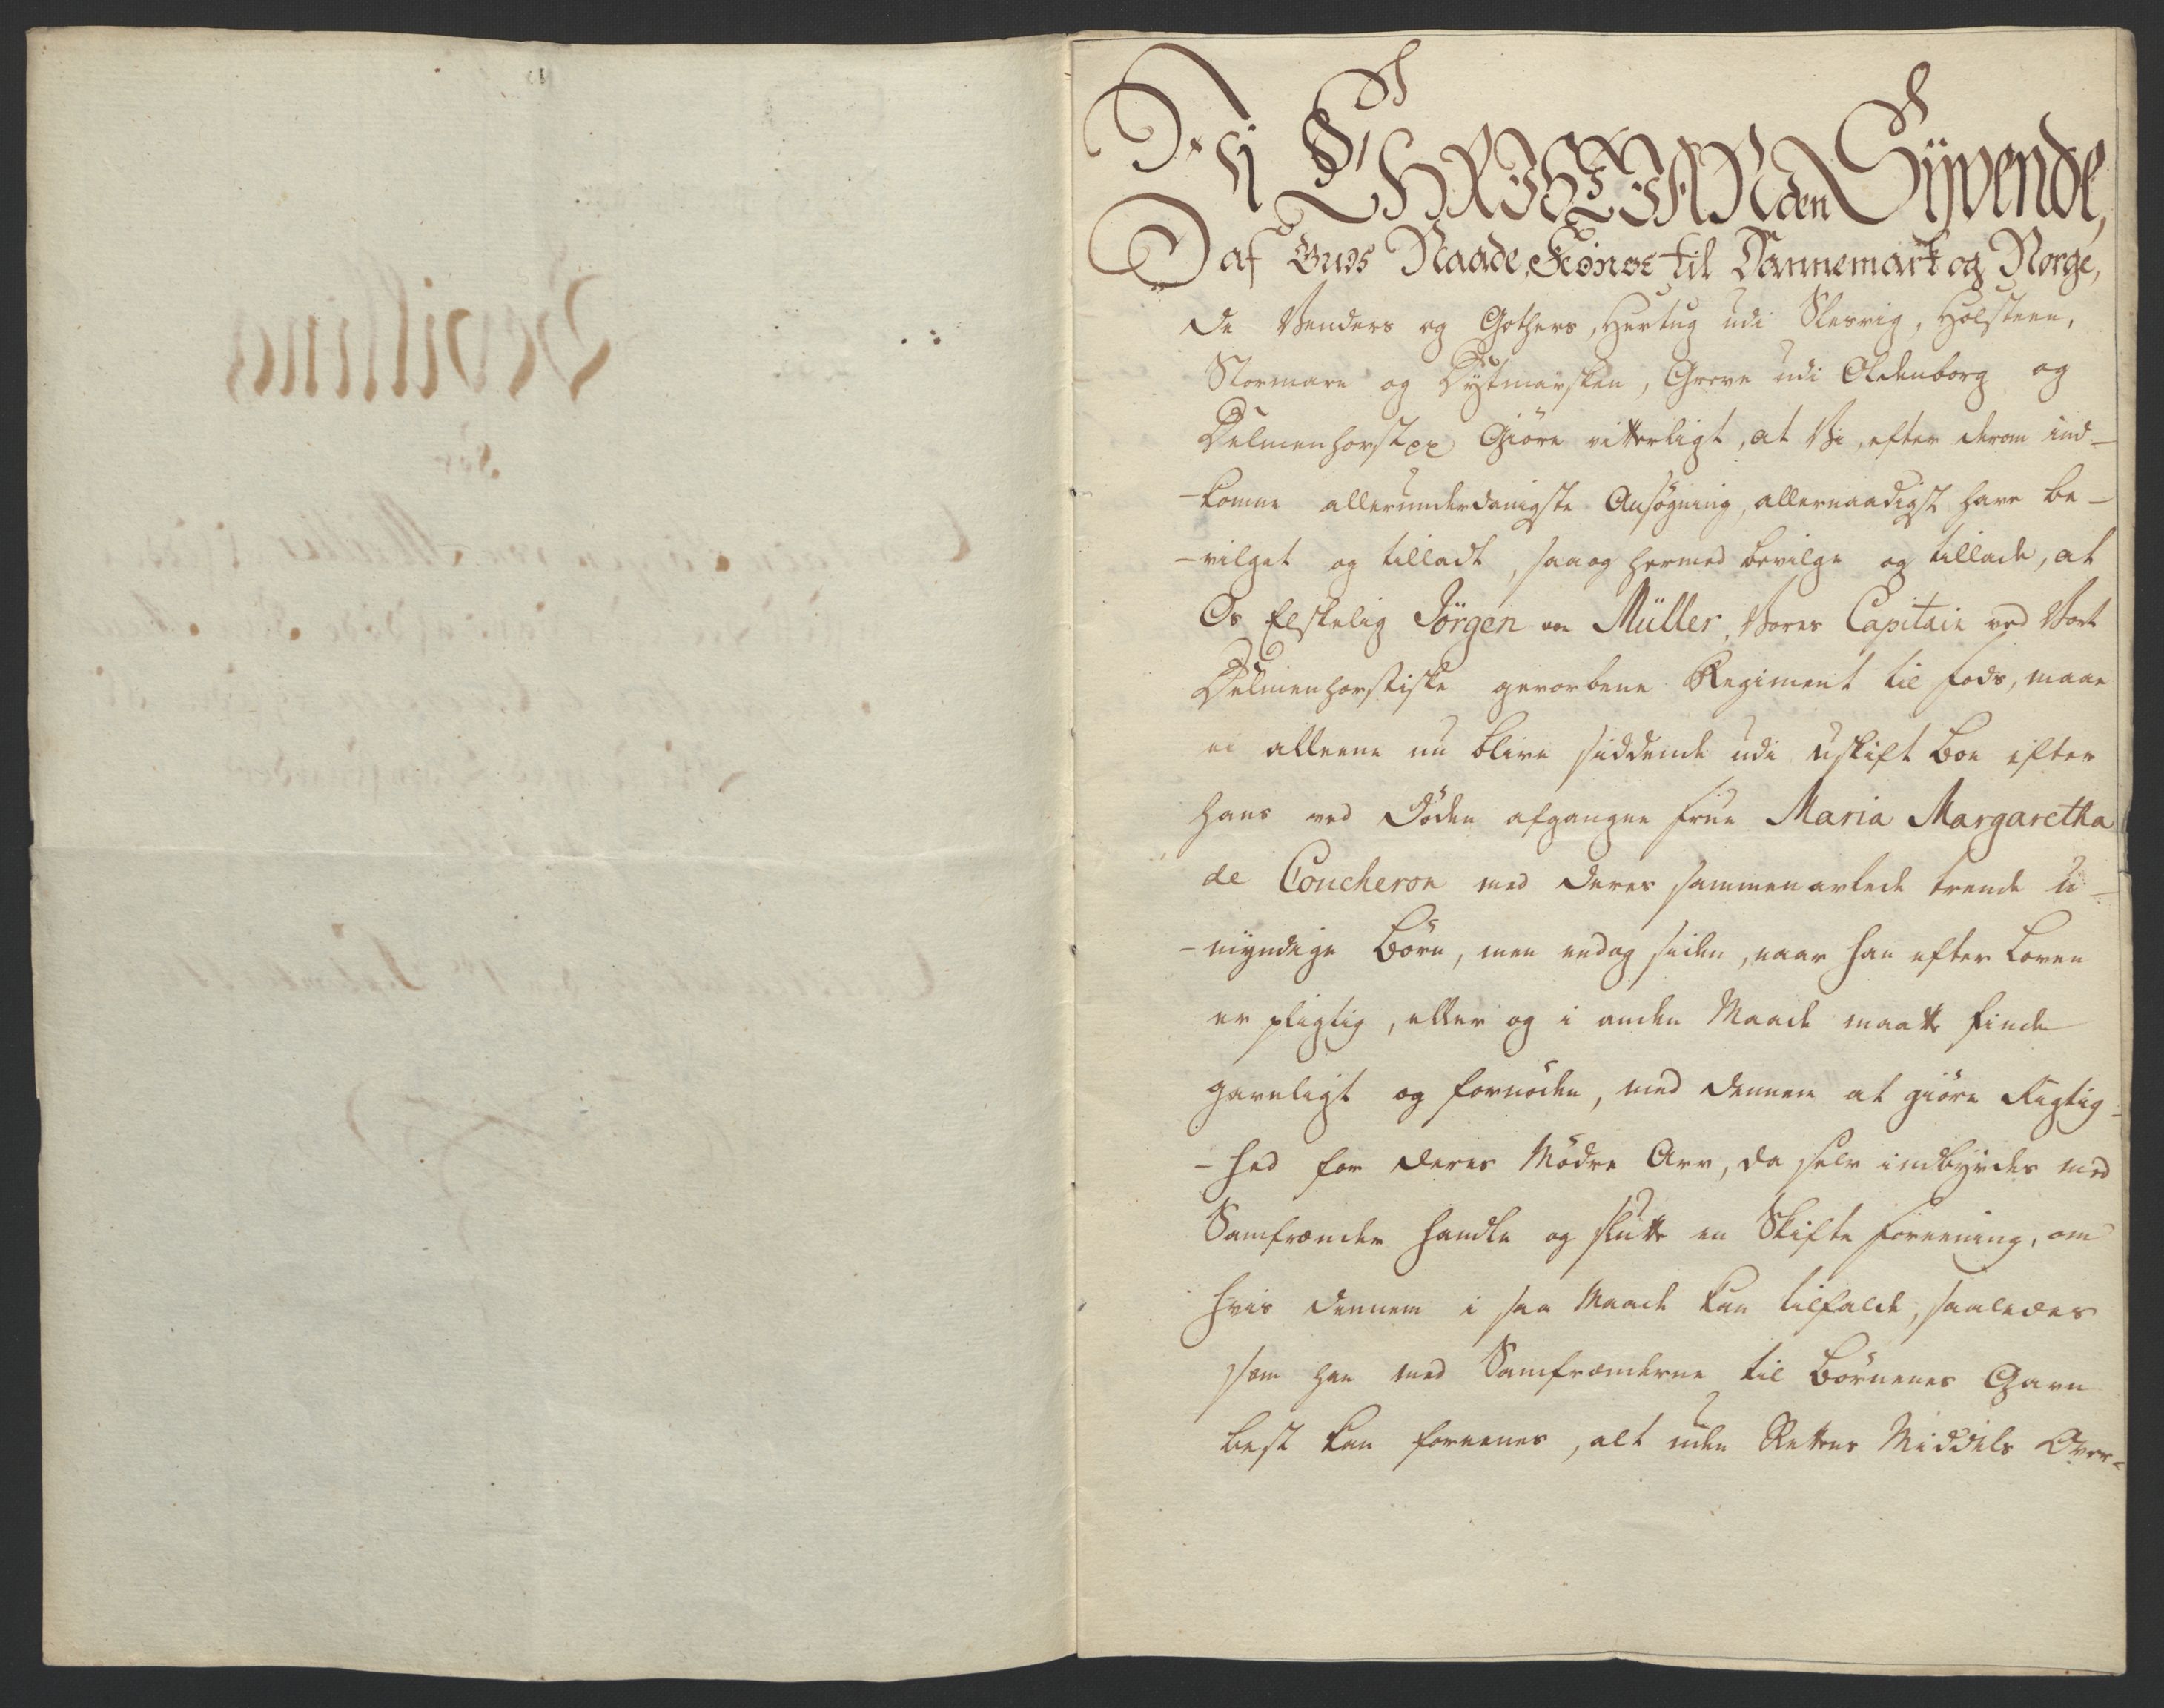 Vi CHRISTIAN den Syvende,
af Guds Naade, Konge til Dannemark og Norge,
de Venders og Gothers, Hertug udi Slesvig, Holsteen,
Stormarn og Dytmarsken, Greve udi Oldenborg og
Delmenhorst px Giöre vitterligt, at Vi, efter derom ind-
-komne allerunderdanigste Ansögning, allernaadigst have be-
-vilget og tilladt, saa og hermed bevilge og tillade, at
Os Elskelig Jörgen von Müller, Vores Capitain ved Vort
Delmenhorstiske gevorbene Regiment til Fods, maae
ei alleene nu blive siddende udi uskift Boe efter
hans ved Döden afgangne Frue Maria Margaretha
de Coucheron med deres sammenavlede trende u-
-myndige Börn, men endog siden, naar han efter Loven
er pligtig, eller og i anden Maade maatte finde
gavnligt og fornöden, med dennem at giöre Rigtig-
-hed for deres Mödrene Arv, da selv indbyrdes med
Samfrænder handle og slutte en Skifte Foreening, om
hvis dennem i saa Maade kan tilfalde, saaledes
som han med Samfrænderne til Börnenes Gavn
best kan foreenes, alt uden Rettens Middels Over-
Bevilling
for